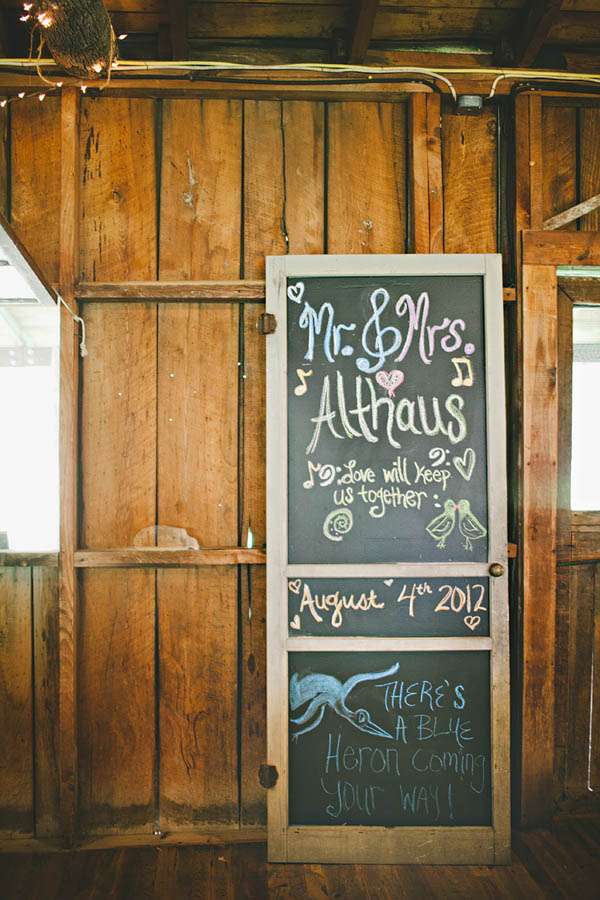 Mr. & Mrs.
Althaus
Love will keep
us together
August 4th 2012
THERE'S
A BLUE
HERON COMING
YOUR WAY!